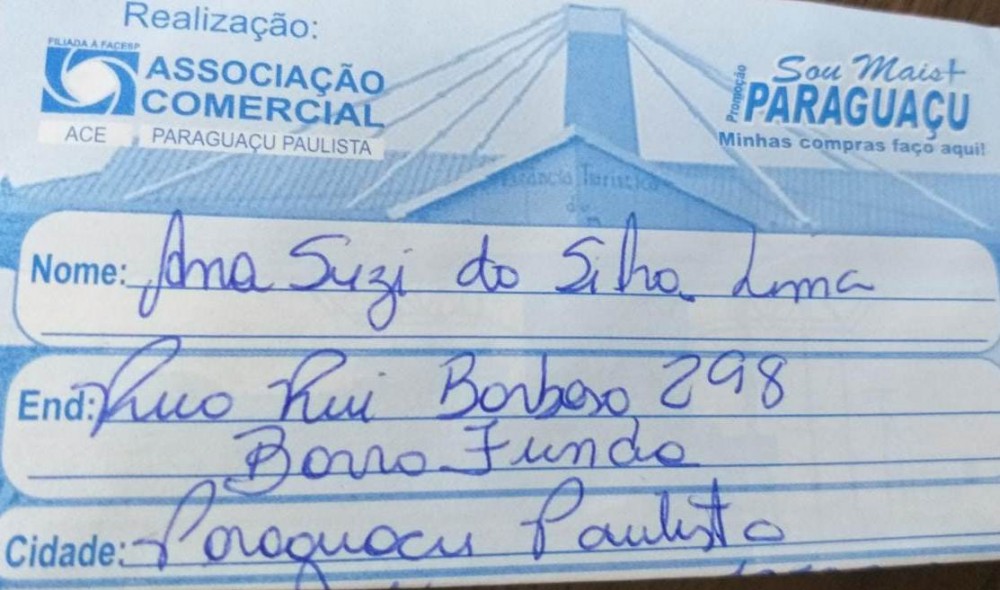 Realização:
FILIADA À FACESP
ASSOCIAÇÃO
COMERCIAL
ACE PARAGUAÇU PAULISTA
Promoção
Sou Mais+
PARAGUAÇU
Minhas compras faço aqui!
Estância Turística
de
Nome: Ana Suzi da Silva Lima
End: Rua Rui Barbosa 298
Barra Funda
Cidade: Paraguacu Paulista